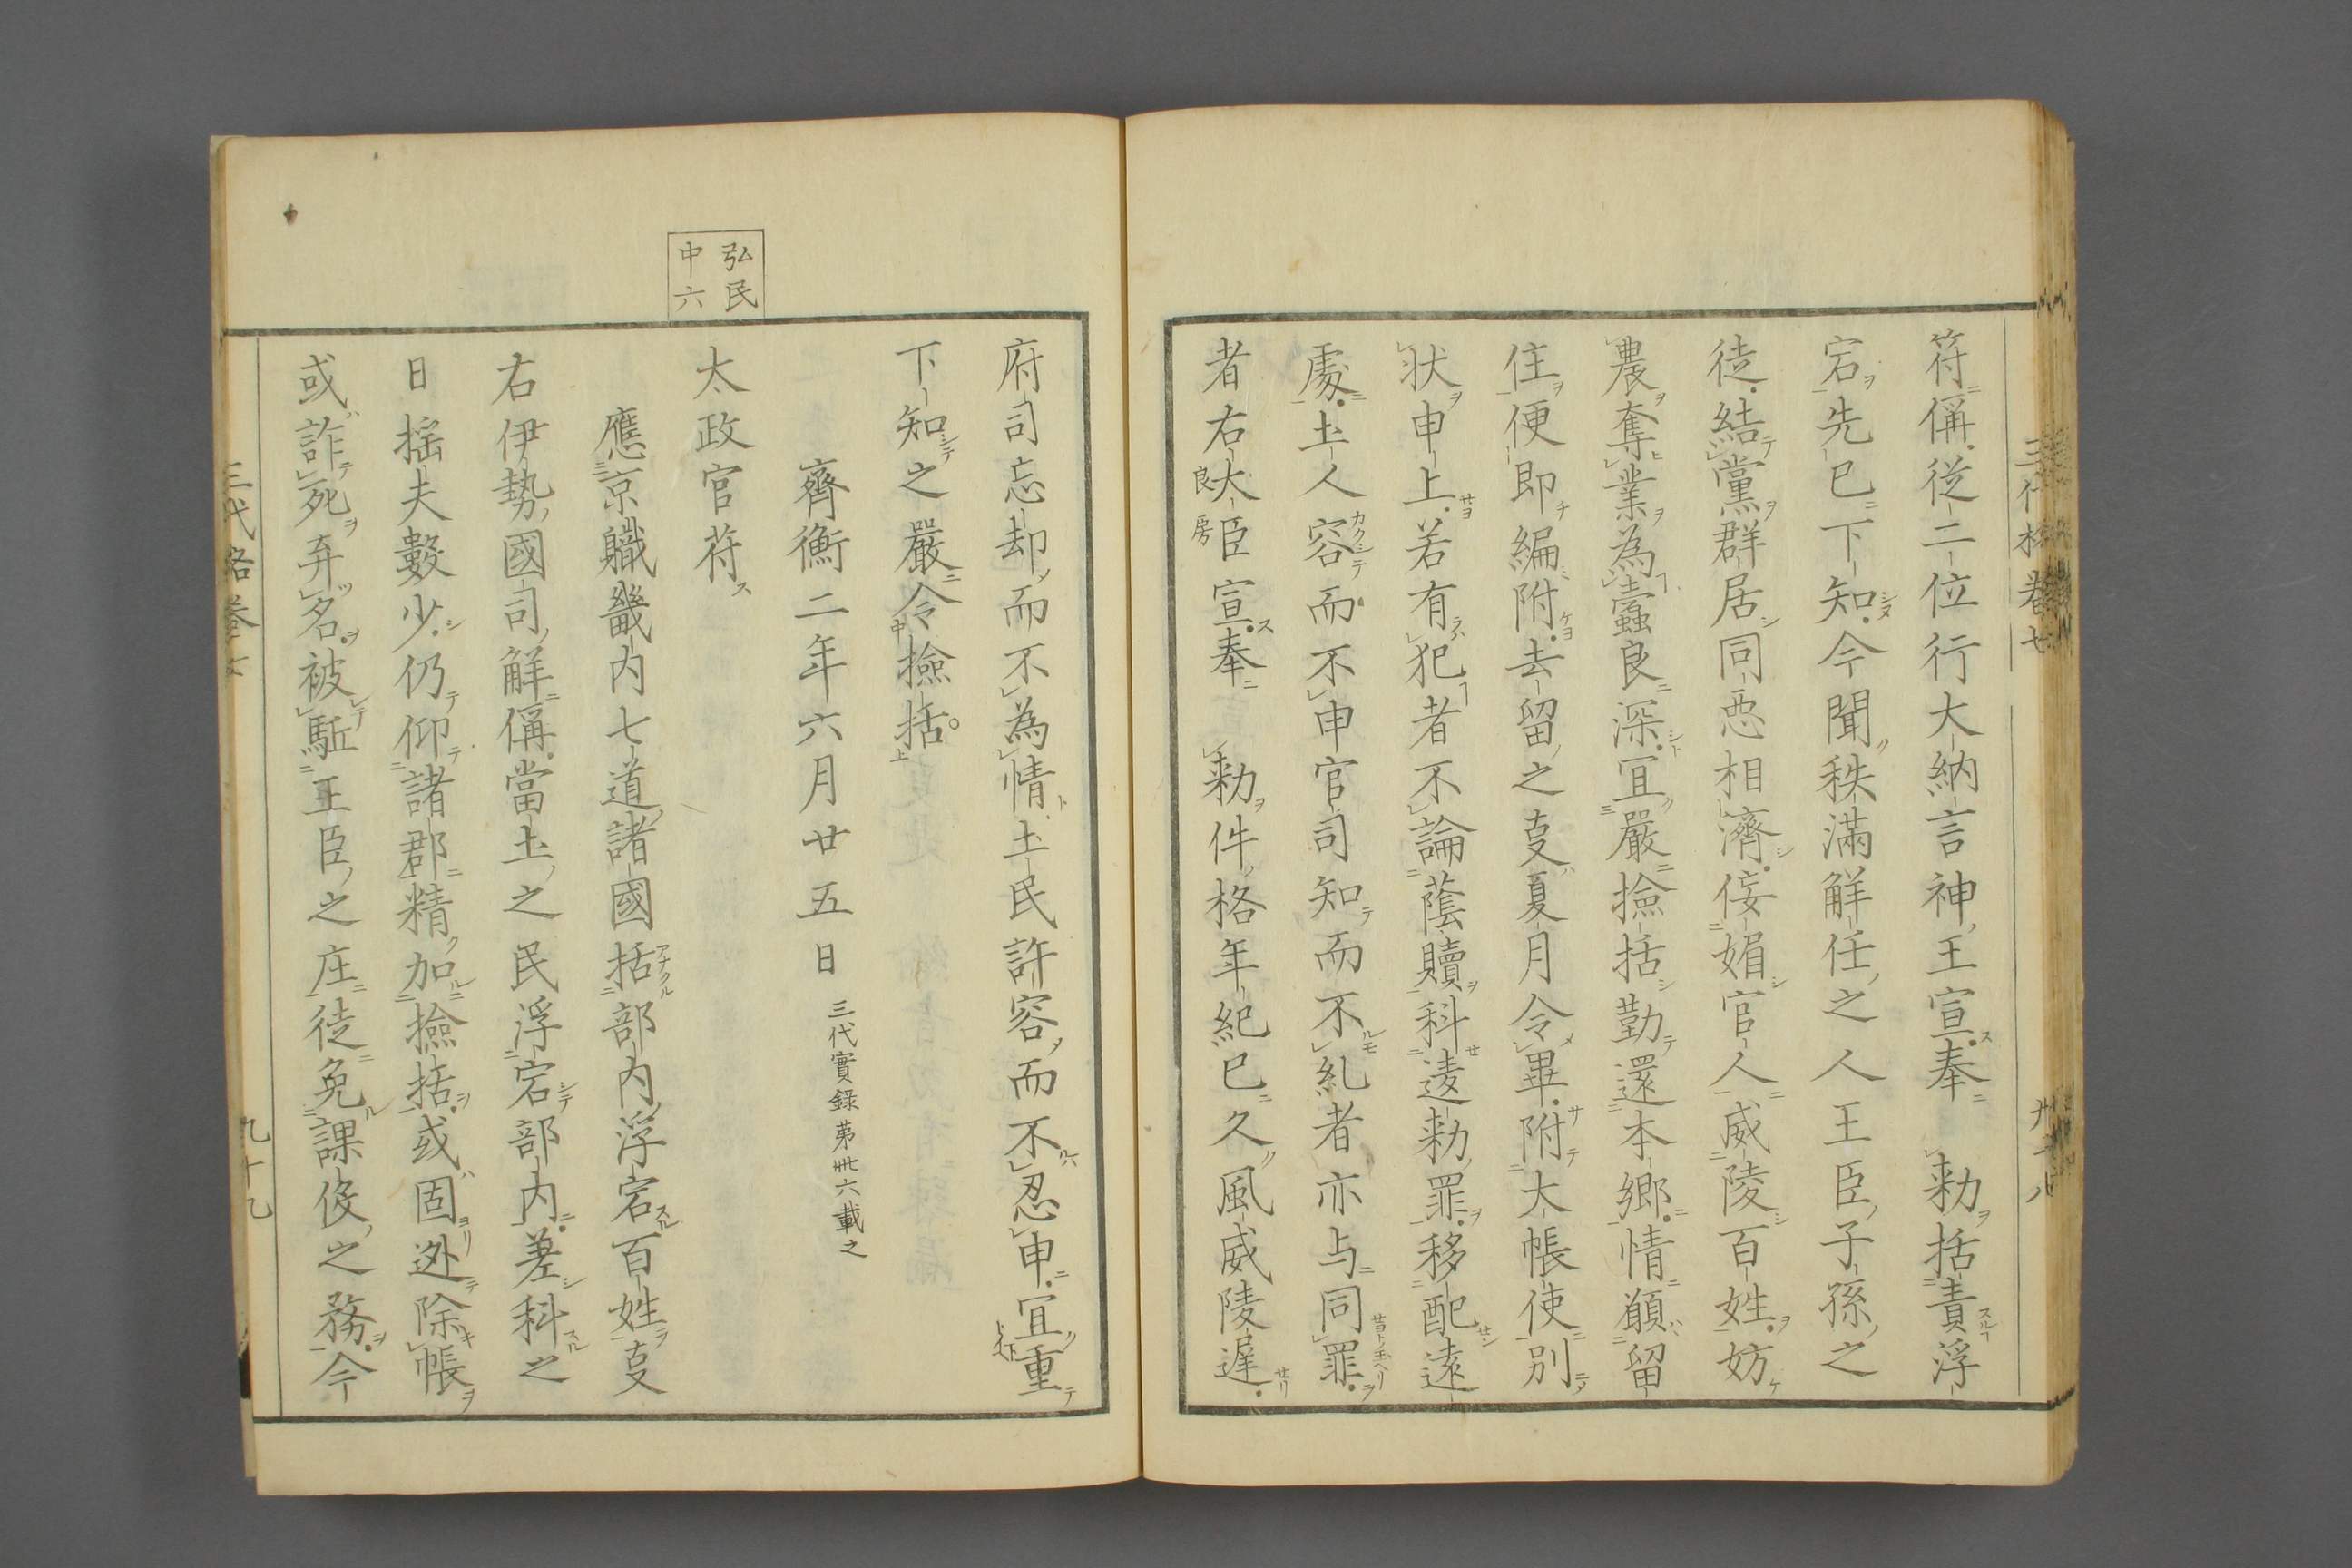 符偁從二位行大納言神王宣奉　勅括責浮
宕先已下知今聞秩滿解任之人王臣子孫之
徒結黨群居同惡相濟侫媚官人威陵百姓妨
農奪業為蠹良深冝嚴撿括勤還本鄉情願留
住便即編附去留之㕝夏月令畢附大帳使別
狀申上若有犯者不論蔭贖科違勅罪移配遠
處土人容而不申官司知而不糺者亦与同罪
者右大臣宣奉　勅件格年紀已久風威陵遲
良房
府司忘却而不為情土民許容而不忍申冝重
下知之嚴令撿括
齊衡二年六月廿五日 三代實錄苐卅六載之
弘民
中六
太政官苻
應京職畿内七道諸國括部内浮宕百姓㕝
右伊勢國司解偁當土之民浮宕部内差科之
日揺夫數少仍仰諸郡精加撿括或固逊除帳
或詐死弃名被駈王臣之庄徒免課役之務今